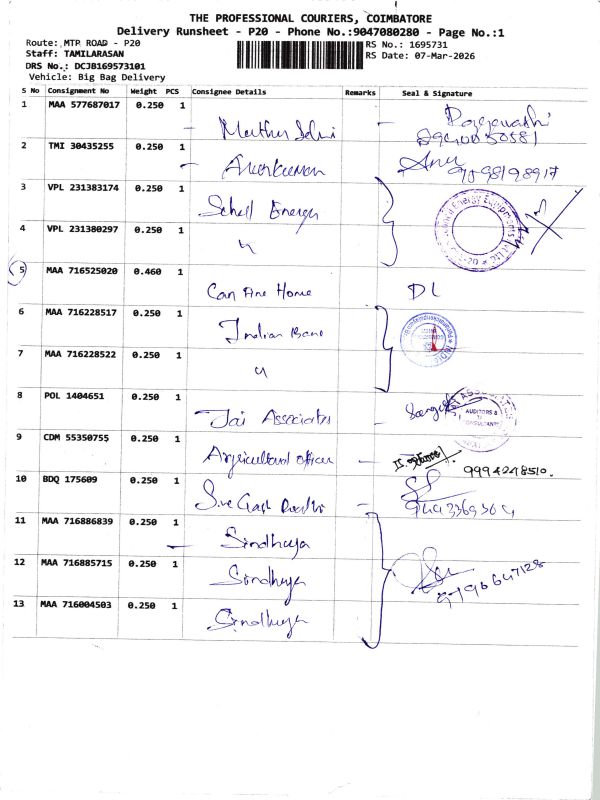 THE PROFESSIONAL COURIERS, COIMBATORE
Delivery Runsheet - P20 - Phone No.:9047080280 - Page No.:1
Route: MTP ROAD - P20
RS No.: 1695731
Staff: TAMILARASAN
RS Date: 07-Mar-2026
DRS No.: DCJB169573101
Vehicle: Big Bag Delivery
S No Consignment No Weight PCS Consignee Details Remarks Seal & Signature
1 MAA 577687017 0.250 1
2 TMI 30435255 0.250 1 Arunkumar
3 VPL 231383174 0.250 1 Energy
4 VPL 231380297 0.250 1 "
5 MAA 716525020 0.460 1 Can Fine Home DL
6 MAA 716228517 0.250 1 Indian Bank
7 MAA 716228522 0.250 1 "
8 POL 1404651 0.250 1 Jai Associates
AUDITORS &
9 CDM 55350755 0.250 1 Agricultural officer
9994248510.
10 BDQ 175609 0.250 1 Sree
11 MAA 716886839 0.250 1 Sindhuya
12 MAA 716885715 0.250 1 Sindhuya
13 MAA 716004503 0.250 1 Sindhuya